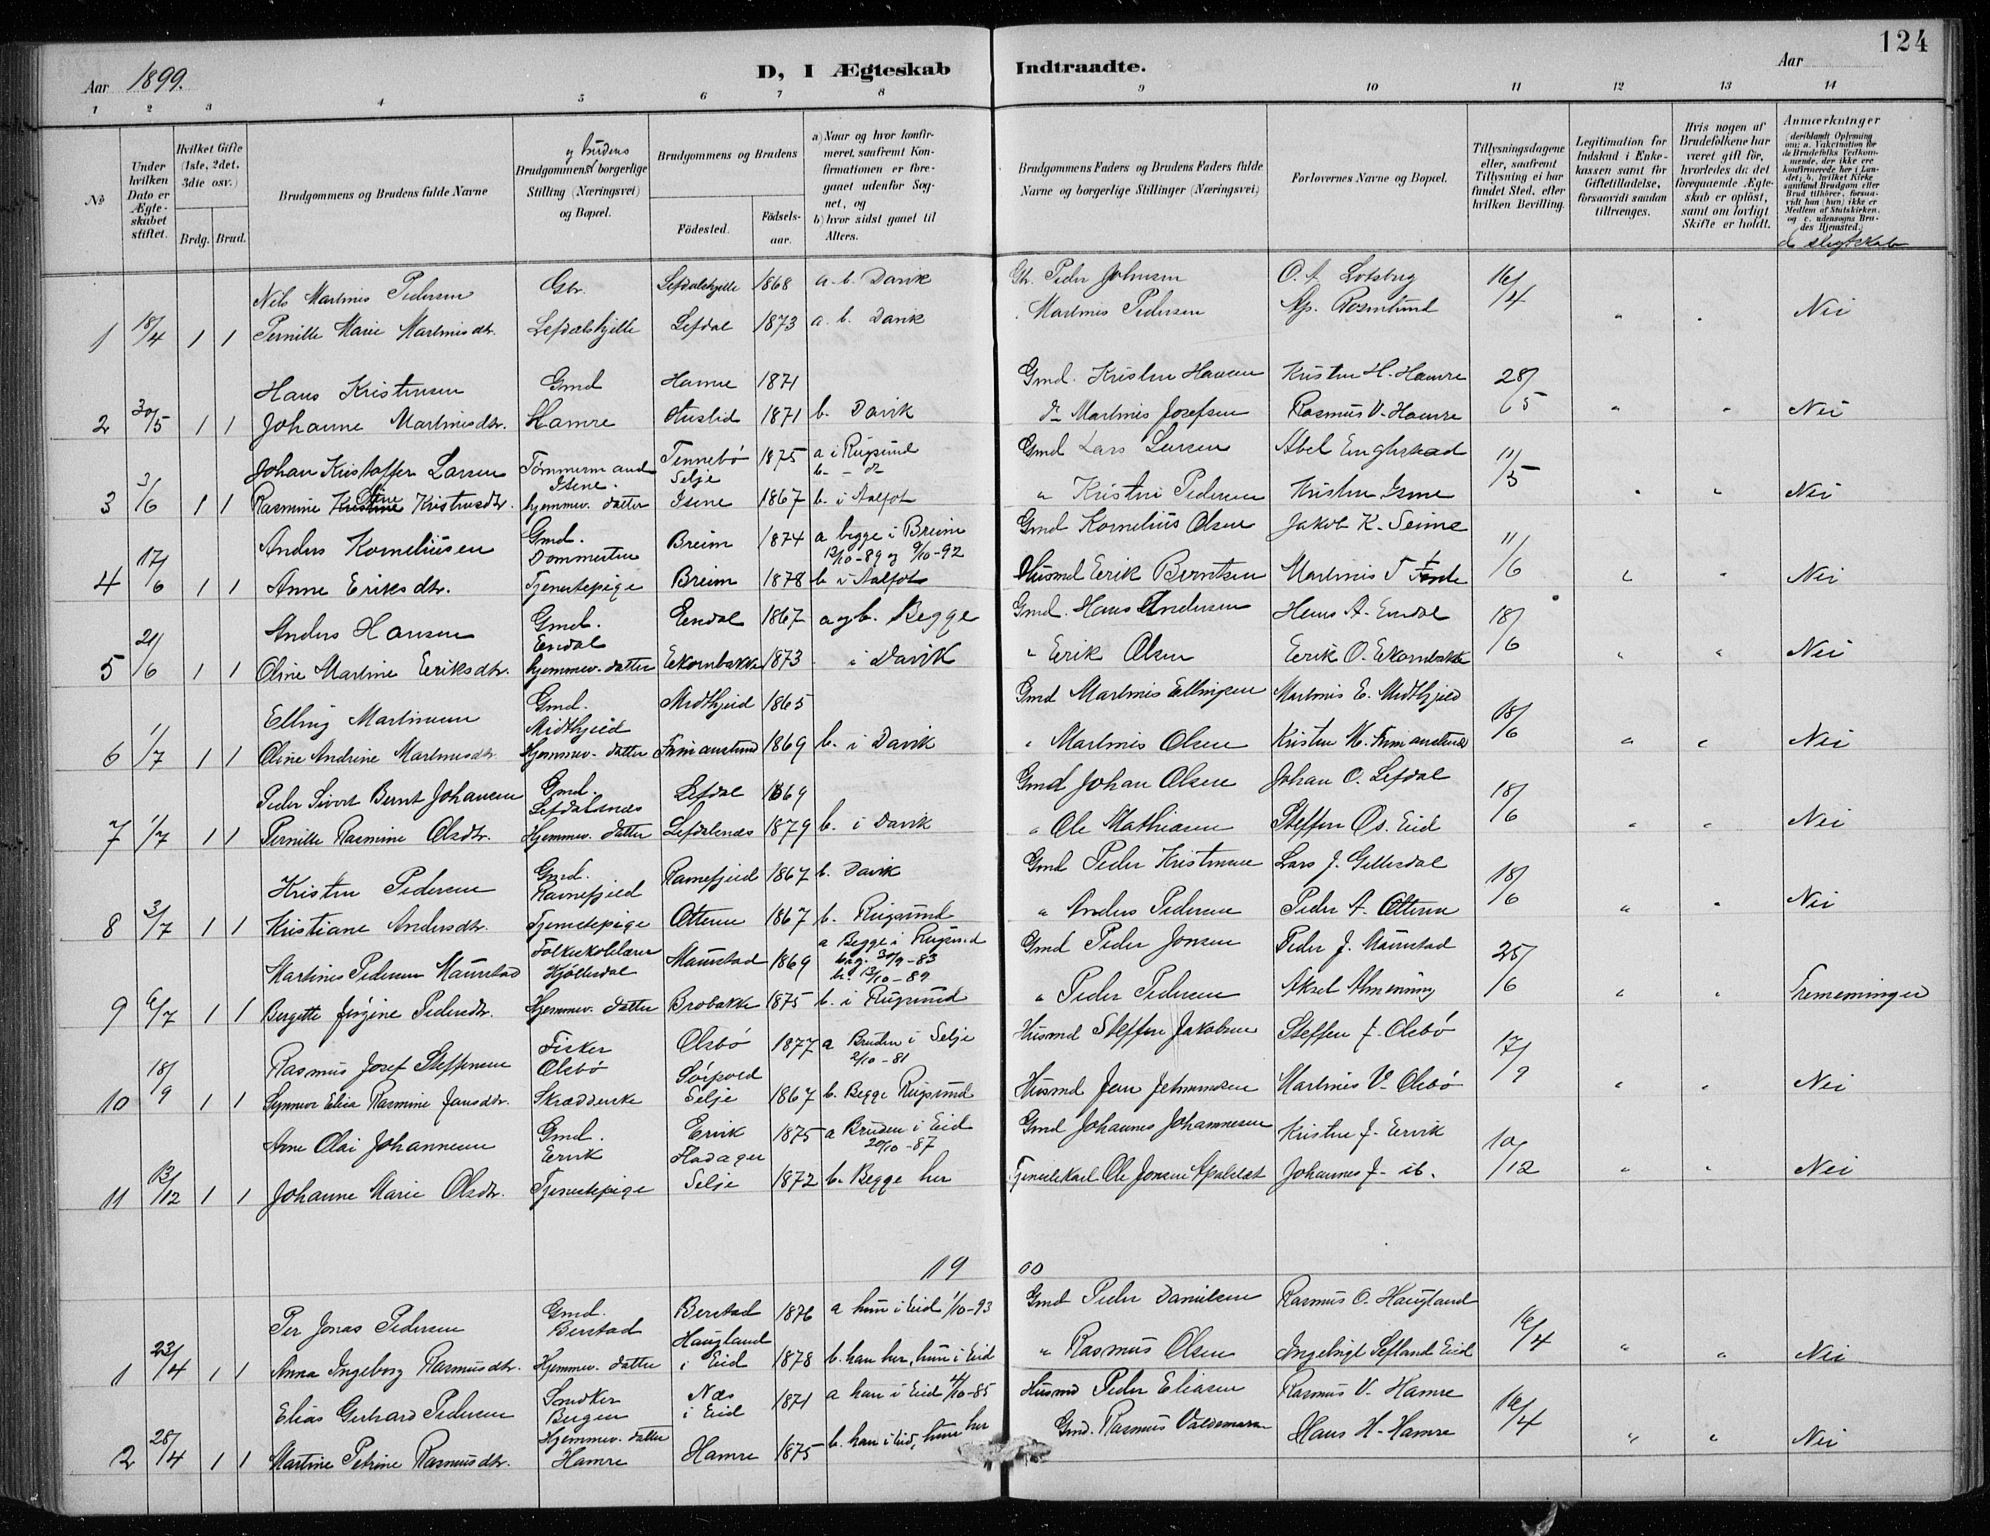 124
Aar 1899.
D, I Ægteskab Indtraadte.
Aar
1 2 3 4 5 6 7 8 9 10 11 12 13 14
No
Under hvilken Dato er Ægteskabet stiftet.
Hvilket Gifte (1ste, 2det, 3die osv.)
Brdg. Brud.
Brudgommens og Brudens fulde Navne
Brudgommens og Brudens borgerlige Stilling (Næringsvei) og Bopæl.
Brudgommens og Brudens
Födested.
Födselsaar.
a) Naar og hvor konfirmeret, saafremt Konfirmationen er foregaaet udenfor Sognet, og
b) hvor sidst gaaet til Alters.
Brudgommens Faders og Brudens Faders fulde Navne og borgerlige Stillinger (Næringsvei)
Forlovernes Navne og Bopæl.
Tillysningsdagene eller, saafremt Tillysning ei har fundet Sted, efter hvilken Bevilling.
Legitimation for Indskud i Enkekassen samt for Giftetilladelse, forsaavidt saadan tiltrænges.
Hvis nogen af Brudefolkene har været gift før, hvorledes da det foregaaende Ægteskab er opløst, samt om lovligt Skifte er holdt.
Anmærkninger (deriblandt Oplysning om: a. Vaccination for de Brudefolks Vedkommende, der ikke ere konfirmerede her i Landet; b. hvilket Kirkesamfund Brudgom eller Brud tilhører, forsaavidt han (hun) ikke er Medlem af Statskirken, og c. udensogns Brudes Hjemsted.)
d. slegtskab
Nils Martinus Pedersen Gbr. Lefdalskjelle 1868 a. b. Davik Gbr. Peder Johnsen O. A. Lotsberg 16/4
1 18/4 1 1 Pernille Marie Martinusdtr. Lefdalskjelle Lefdal 1873 a. b. Davik " Martinus Pedersen " " Nei
Hans Kristensen Gmd Hamre 1871 Gmd. Kristen Hansen Kristen H. Hamre 28/5
2 30/5 1 1 Johanne Martinusdtr. Hamre 1871 b. Davik do Martinus Josefsen Rasmus V. Hamre " " Nei
Johan Kristoffer Larsen Tømmermand Isene. Tennebö Selje 1875 a i Rugsund b. - do Gmd Lars Larsen Abel Englestad 11/5
3 3/6 1 1 Rasmine Oline Kristensdtr. hjemmev. datter Isene 1867 b. i Aalfot " Kristen Pedersen Kristen Isene " " Nei
Anders Korneliusen Gmd. Dommesten Breim 1874 a begge i Breim 13/10-89 og 9/10-92 Gmd Kornelius Olsen Jakob K. Seime 11/6
4 17/6 1 1 Anne Eriksdtr. Tjenestepige Breim 1878 b. i Aalfot Husmd Erik Berntsen " " Nei
Anders Hansen Gmd. Endal Endal 1867 a og b. Begge Gmd. Hans Andersen Hans A. Endal 18/6
5 21/6 1 1 Oline Martine Eriksdtr. hjemmev. datter Ekornbakke 1873 i Davik " Erik Olsen Erik O. Ekornbakke " " Nei
Elling Martinsen Gmd. Midthjeld Midthjeld 1865 Gmd Martinus Ellingsen Martinus E. Midthjeld 18/6
6 1/7 1 1 Oline Andrine Martinusdtr. Hjemmev. datter 1869 b. i Davik " Martinus Olsen Kristen M. " " Nei
Peder Sivert Bernt Johansen Gmd. Lefdalsnæs Lefdal 1869 Gmd Johan Olsen Johan O. Lefdal 18/6
7 1/7 1 1 Pernille Rasmine Olsdtr. Hjemmev. datter Lefdalsnæs 1879 b. i Davik " Ole Mathiasen Steffen Os. Eid " " Nei
Kristen Pedersen Gmd. Ravnefjeld Ravnefjeld 1867 b. Davik Gmd Peder Kristensen Lars J. Gillesdal 18/6
8 3/7 1 1 Kristiane Andersdtr. Tjenestepige Otteren 1867 b. Rugsund " Anders Pedersen Peder A. Otteren " " Nei
Martinus Pedersen Maurstad Folkeskolelærer Hjöllesdal Maurstad 1869 a Begge i Rugsund brg. 30/9-83 br. 13/10-89 Gmd Peder Jonsen Peder J. Maurstad 25/6
9 6/7 1 1 Bergitte Jörgine Pedersdtr. Hjemmev. datter Brobakke 1875 b. i Rugsund " Peder Pedersen Aksel Almenning " " Tremenninger
Rasmus Josef Steffensen Fisker Olsbö Olsbö 1877 a Bruden i Selje 2/10-81 Husmd Steffen Jakobsen Steffen J. Olsbö 17/9
10 18/9 1 1 Synneve Elisa Rasmine Jansdtr. Skrædderske Sörpold Selje 1867 b. Begge Rugsund Husmd Jens Martinus V. Olsbö " " Nei
Arne Olai Johannesen Gmd. Ervik Ervik 1875 a Bruden i Eid 20/10-87 Gmd Johannes Johannesen Kristen J. Ervik 10/12
11 12/12 1 1 Johanne Marie Olsdtr. Tjenestepige Hadager Selje 1872 b. Begge her Tjenestekarl Ole Jonsen Apaldset Johannes J. ib. " " Nei
1900
Per Jonas Pedersen Gmd. Berstad Berstad 1876 a hun i Eid 1/10-93 Gmd Peder Danielsen Rasmus O. Haugland 16/4
1 23/4 1 1 Anna Ingeborg Rasmusdtr. Hjemmev. datter Haugland i Eid 1878 b. han her, hun i Eid " Rasmus Olsen Ingebrigt Sefland Eid " " Nei
Elias Gerhard Pedersen Snedker Bergen Næs i Eid 1871 a han i Eid 4/10-85 Husmd Peder Eliasen Rasmus V. Hamre 16/4
2 28/4 1 1 Martine Petrine Rasmusdtr. Hjemmev. datter Hamre Hamre 1875 b. han i Eid, hun her Gmd. Rasmus Valdemarsen Hans H. Hamre " " Nei